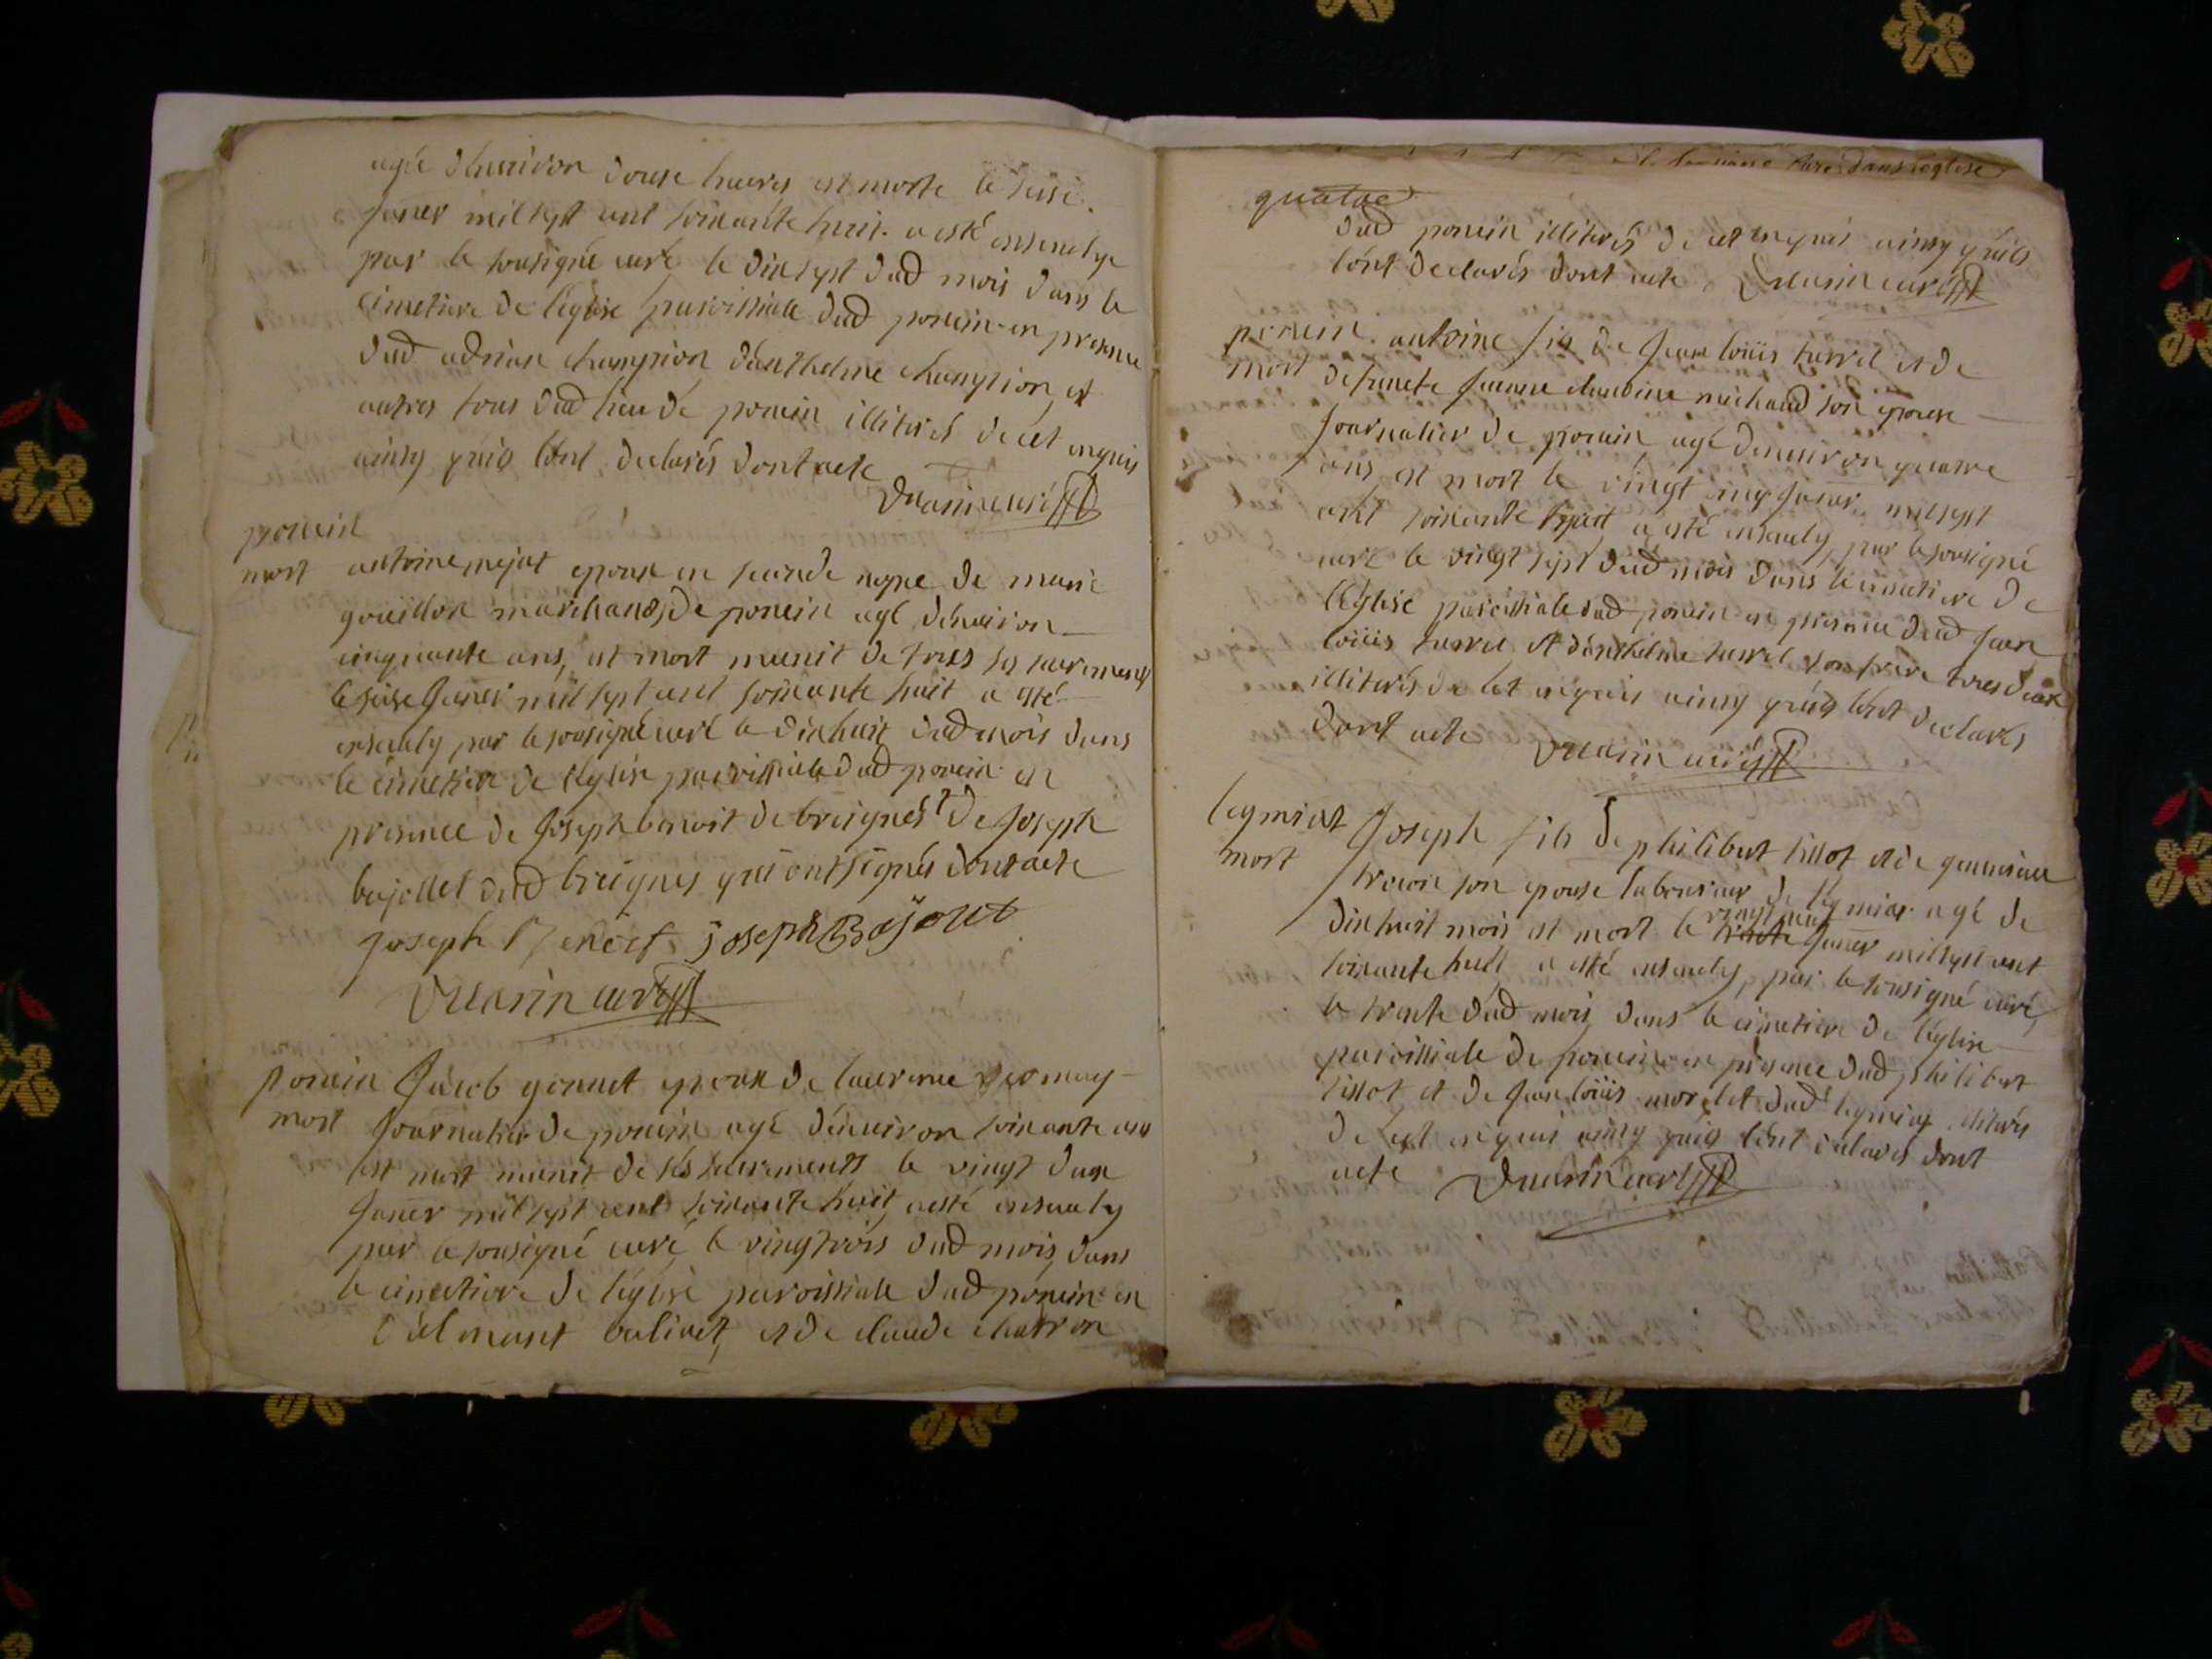 agé denviron douse heures est morte le seise
janer mil sept cent soixante huit a esté ensevelye
par le sousigné curé le dixsept dud mois dans le
cimetiere de leglise paroissiale dud poncin en presence
dud adrian champion danthelme champion et
autres tous dud lieu de poncin illiterés de cet enquis
ainsy quils lont declarés dont acte
curé
poncin
mort antoine mejat epoux en seconde nopse de marie
goüillon marchand de poncin agé denviron
cinquante ans, est mort munit de tous ses sacrements
le seise janer mil sept cent soixante huit a esté
ensevely par le sousigné curé le dixhuit dud mois dans
le cimetiere de leglise paroissiale dud poncin en
presence de joseph benoit de breignes et de joseph
bajollet dud breignes qui ont signés dont acte
joseph Benoit joseph Bajolet
curé
poncin jacob gonnet epoux de laurence
mort journalier de poncin agé denviron soixante ans
est mort munit de ses sacrements le vingt deux
janer mil sept cent soixante huit, a esté ensevely
par le sousigné curé le vingtrois dud mois, dans
le cimetiere de leglise paroissiale dud poncin en
et de claude charron
curé dans leglise
quatre
dud poncin illiterés de cet enquis ainsy quils
lont declarés dont acte curé
poncin antoine fils de jean loüis turrel et de
mort defuncte jeanne claudine michaud son epouse
journalier de poncin agé denviron quatre
ans, est mort le vingt cinq janer mil sept
cent soixante huit a esté ensevely, par le sousigné
curé le vingt sept dud mois dans le cimetiere de
leglise paroissiale dud poncin en presence dud jean
loüis turrel et danthelme turrel son frere tous deux
illiterés de cet enquis ainsy quils lont declarés
dont acte curé
mort joseph fils de philibert tissot et de
son epouse laboureur de agé de
dixhuit mois est mort le vingt neuf janer mil sept cent
soixante huit a esté ensevely, par le sousigné curé,
le trente dud mois, dans le cimetiere de leglise
paroissiale de poncin en presence dud philibert
tissot et de jean loüis morelet dud illiterés
de cet enquis ainsy quils lont declarés dont
acte curé